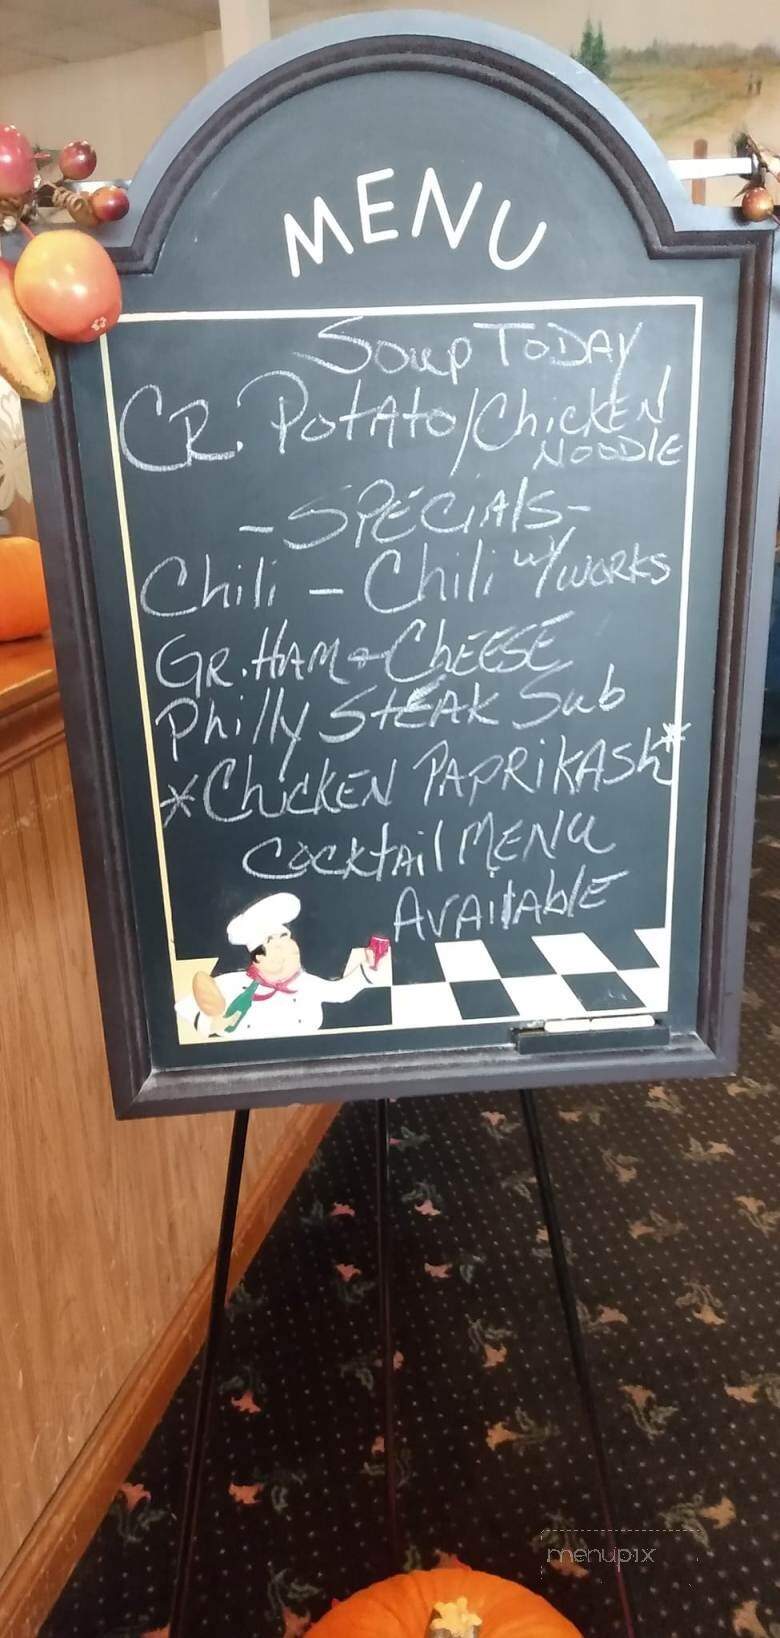 MENU
Soup TODAY
CR. Potato/Chicken
NOODLE
-SPECIAls-
Chili - Chili w/works
GR. HAM & CHEESE
Philly STEAK Sub
*CHICKEN PAPRIKASh*
COCKtAil MENU
AVAilAblE
menupix